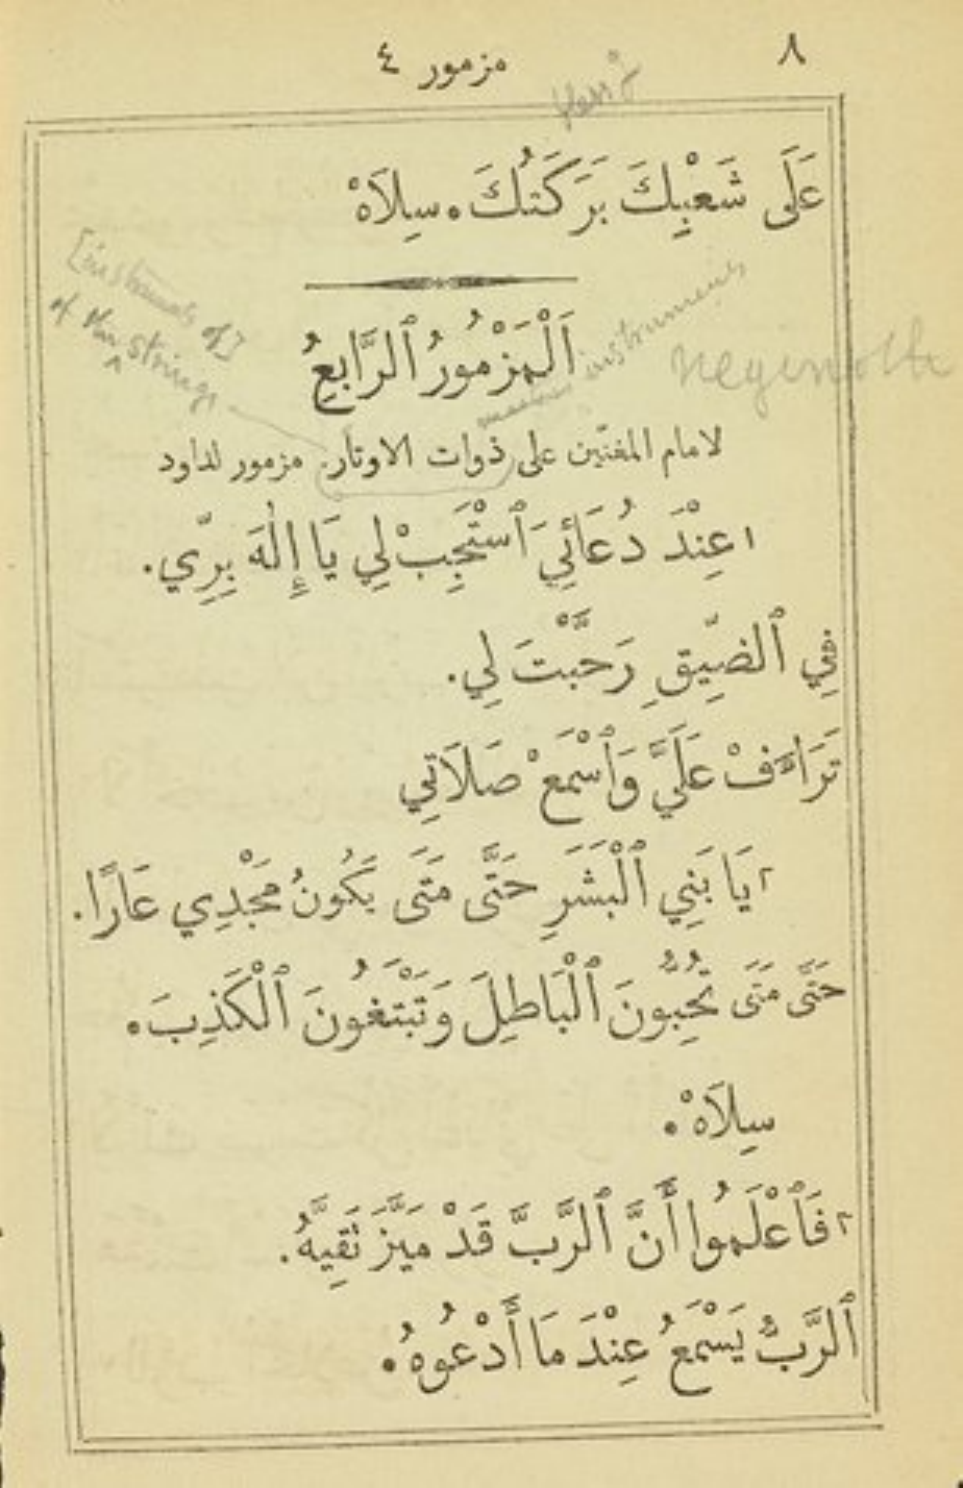 ٨
مزمور ٤
عَلَى شَعْبِكَ بَرَكَتُكَ. سِلاَهْ
[instruments of]
of the strings
instruments
neginoth
اَلْمَزْمُورُ ٱلرَّابِعُ
لامام المغنّين على ذوات الاوتار. مزمور لداود
١ عِنْدَ دُعَائِيَ ٱسْتَجِبْ لِي يَا إِلٰهَ بِرِّي.
فِي ٱلضِّيقِ رَحَّبْتَ لِي.
تَرَاءَفْ عَلَيَّ وَٱسْمَعْ صَلَاتِي
٢ يَا بَنِي ٱلْبَشَرِ حَتَّى مَتَى يَكُونُ مَجْدِي عَارًا.
حَتَّى مَتَى تُحِبُّونَ ٱلْبَاطِلَ وَتَبْتَغُونَ ٱلْكَذِبَ.
سِلاَهْ.
٣ فَٱعْلَمُوا أَنَّ ٱلرَّبَّ قَدْ مَيَّزَ تَقِيَّهُ.
ٱلرَّبُّ يَسْمَعُ عِنْدَ مَا أَدْعُوهُ.